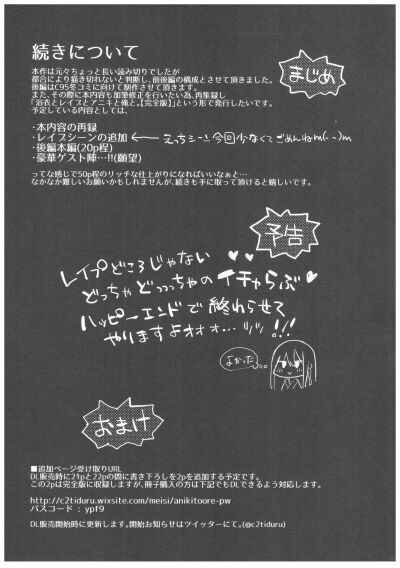 続きについて
まじめ
本作は元々ちょっと長い読み切りでしたが
都合により描き切れないと判断し、前後編の構成とさせて頂きました。
後編はC95冬コミに向けて制作させて頂きます。
また、その際に本内容も加筆修正を行いたい為、再集録し
「浴衣とレイプとアニキと俺と。【完全版】」という形で発行したいです。
予定している内容としては、
・本内容の再録
・レイプシーンの追加 ← えっちシーン今回少なくてごめんねm(--)m
・後編本編(20p程)
・豪華ゲスト陣…!!(願望)
ってな感じで50p程のリッチな仕上がりになればいいなぁと…
なかなか難しいお願いかもしれませんが、続きも手に取って頂けると嬉しいです。
予告
レイプどころじゃない♥♥
どっちゃどっっっちゃのイチャらぶ♥
ハッピーエンドで終わらせて
やりますよオオォ…ッッ!!!
よかった
おまけ
■追加ページ受け取りURL
DL販売時に21pと22pの間に書き下ろしを2pを追加する予定です。
この2pは完全版に収録しますが、冊子購入の方は下記でもDLできるよう対応します。
http://c2tiduru.wixsite.com/meisi/anikitoore-pw
パスコード : ypf9
DL販売開始時に更新します。開始お知らせはツイッターにて。(@c2tiduru)